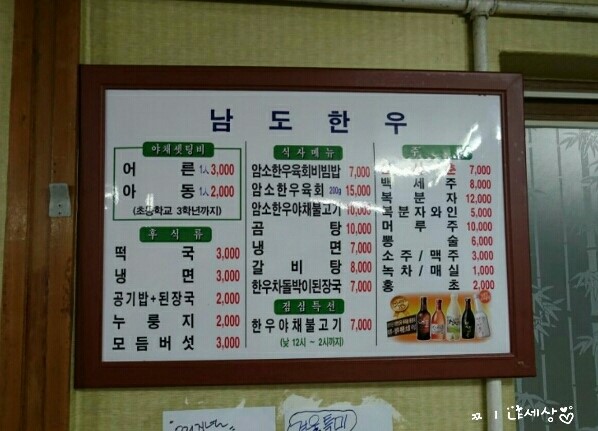 남도한우
야채셋팅비
어른 1人 3,000
아동 1人 2,000
(초등학교 3학년까지)
후식류
떡국 3,000
냉면 3,000
공기밥+된장국 2,000
누룽지 2,000
모듬버섯 3,000
식사메뉴
암소한우육회비빔밥 7,000
암소한우육회 200g 15,000
암소한우야채불고기 10,000
곰탕 10,000
냉면 7,000
갈비탕 8,000
한우차돌박이된장국 7,000
점심특선
한우야채불고기 7,000
(낮 12시 ~ 2시까지)
주
7,000
백세주 8,000
복분자 12,000
복분자와인 5,000
머루주 10,000
뽕술 6,000
소주/맥주 3,000
녹차/매실 1,000
홍초 2,000